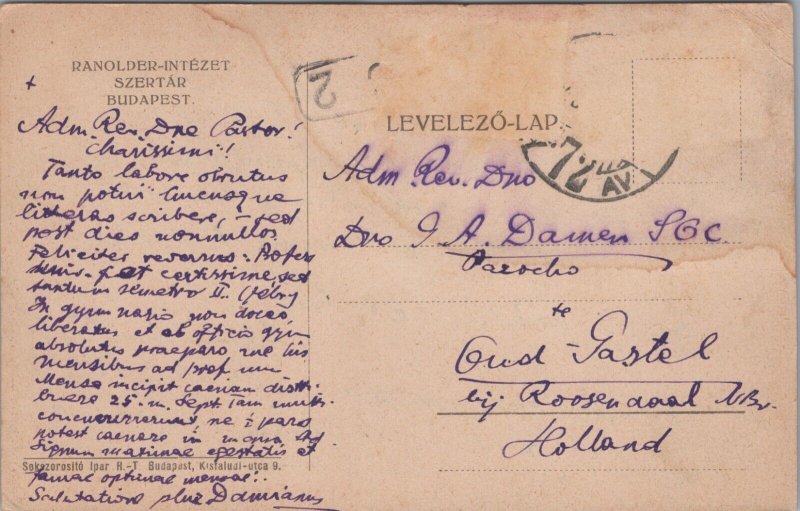 RANOLDER-INTÉZET
SZERTÁR
BUDAPEST.
+
Adm. Rev. Dne Pastor!
charissimi!
Tanto labore obrutus
non potui hucusque
litteras scribere, – sed
post dies nonnullos
felicites
certissime sed
tantum semetro II.
In gymnasio non doceo,
liberatus et ab officio gym
absolutus praeparo me his
mensibus ad
Mense incipit caenam distri-
buere 25. m. Sept. Iam multi
concurrerunt, ne 1 pars
potest caenare in
Signum maximae egestatis et
famae optimae mensae!
Salutations plur Damianus
Sokszorosító Ipar R.-T Budapest, Kisfaludi-utca 9.
2
LEVELEZŐ-LAP
72
AV
Adm Rev. Dno
Dno J A. Damen SCC.
Parocho
te
Oud-Gastel
bij Roosendaal N.Br.
Holland